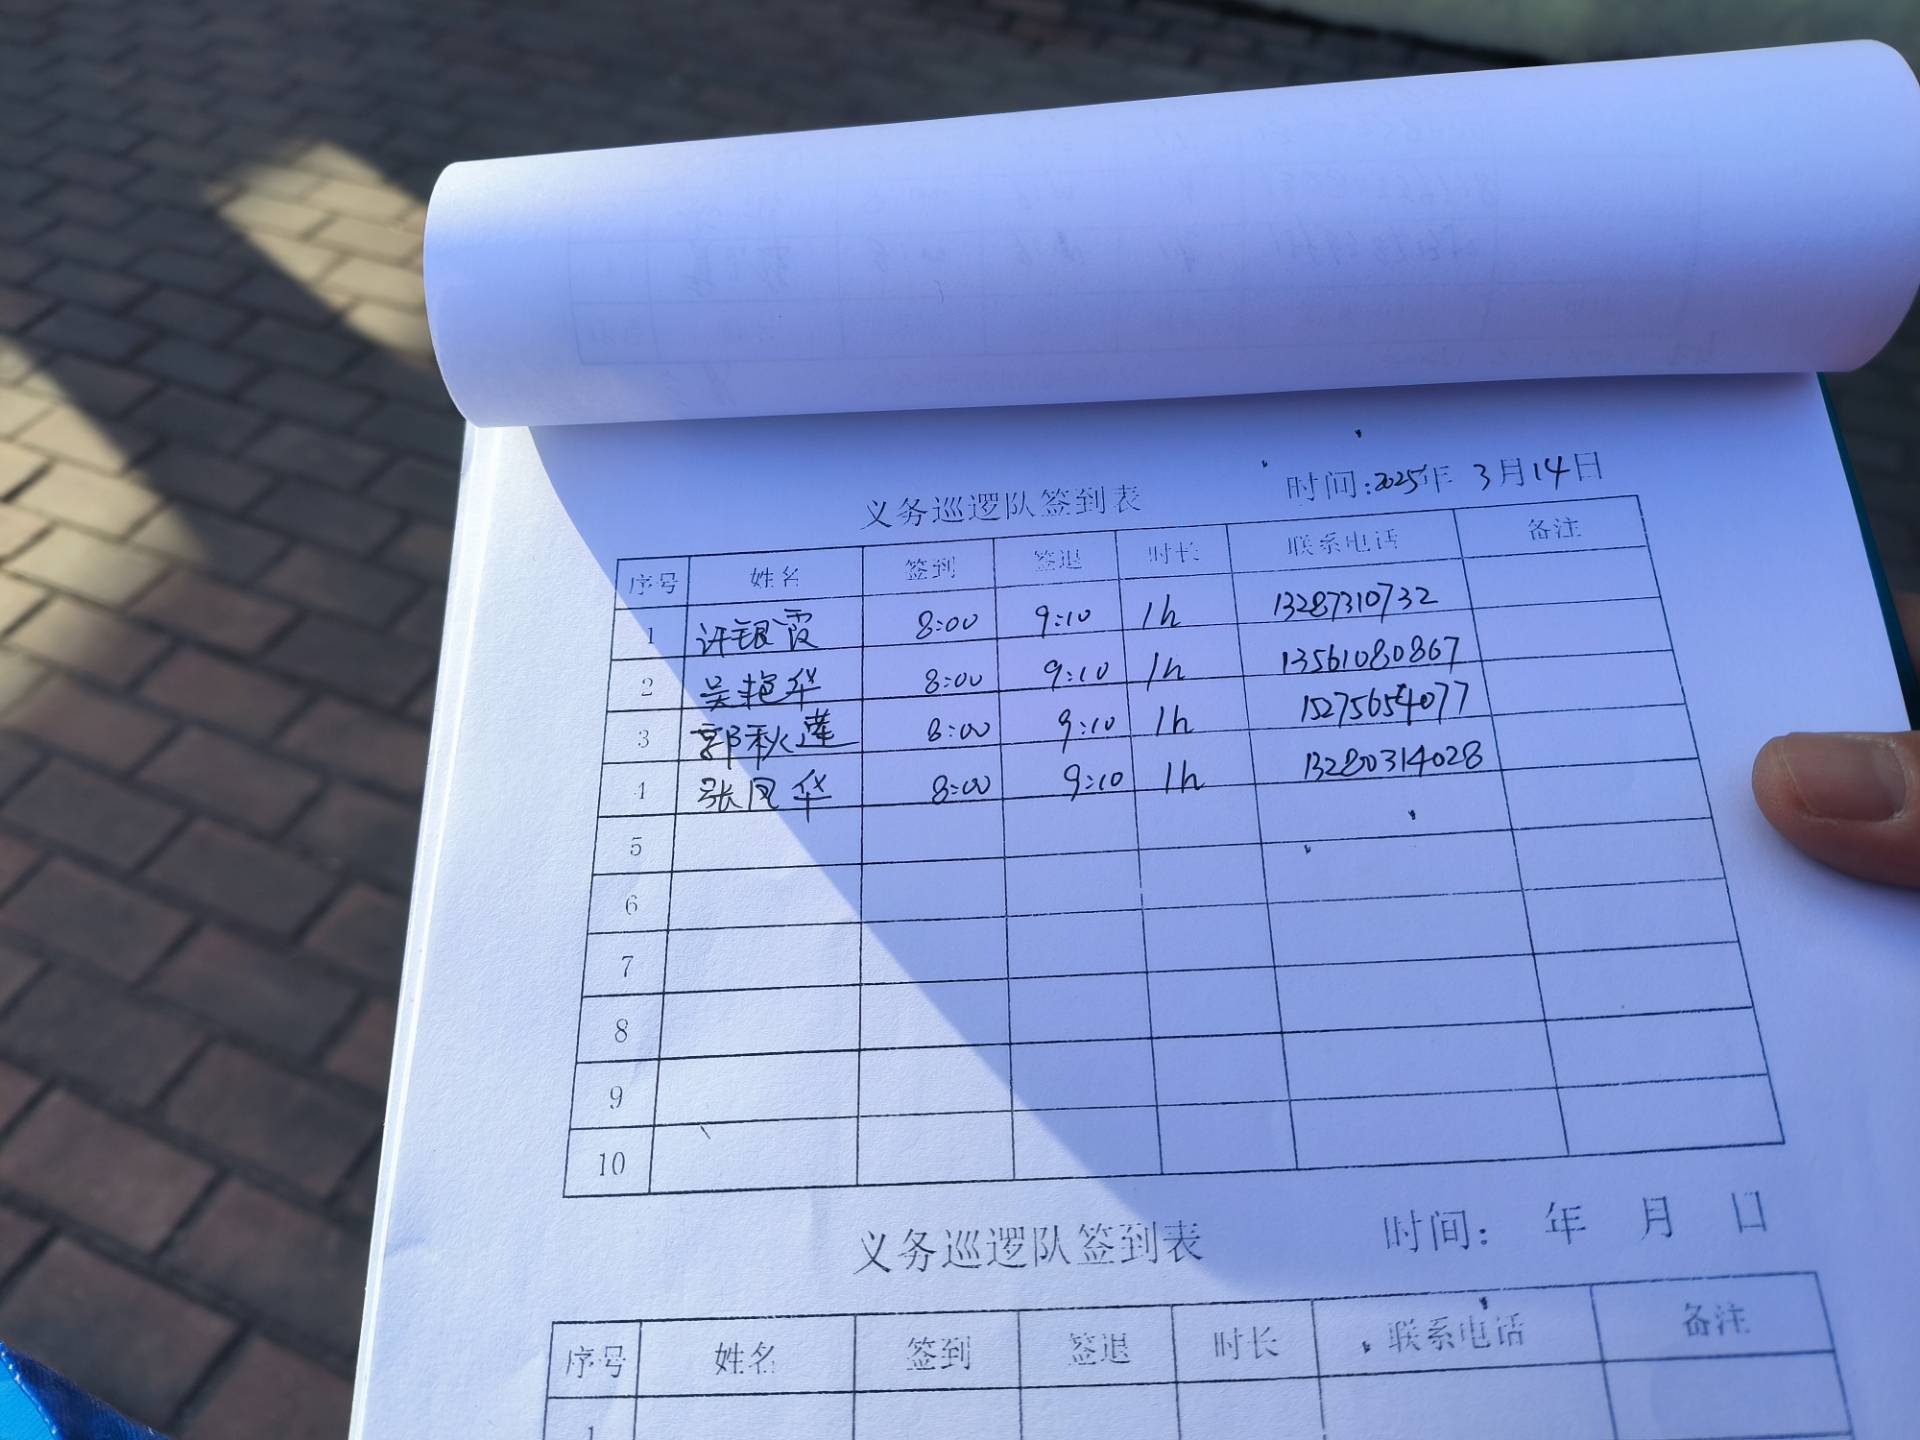 义务巡逻队签到表 时间:2025年 3月14日
序号 姓名 签到 签退 时长 联系电话 备注
1 许银霞 8:00 9:10 1h 13287310732
2 吴艳华 8:00 9:10 1h 13561080867
3 郭秋莲 8:00 9:10 1h 15275654077
4 张凤华 8:00 9:10 1h 13280314028
5
6
7
8
9
10
义务巡逻队签到表 时间: 年 月 日
序号 姓名 签到 签退 时长 联系电话 备注
1